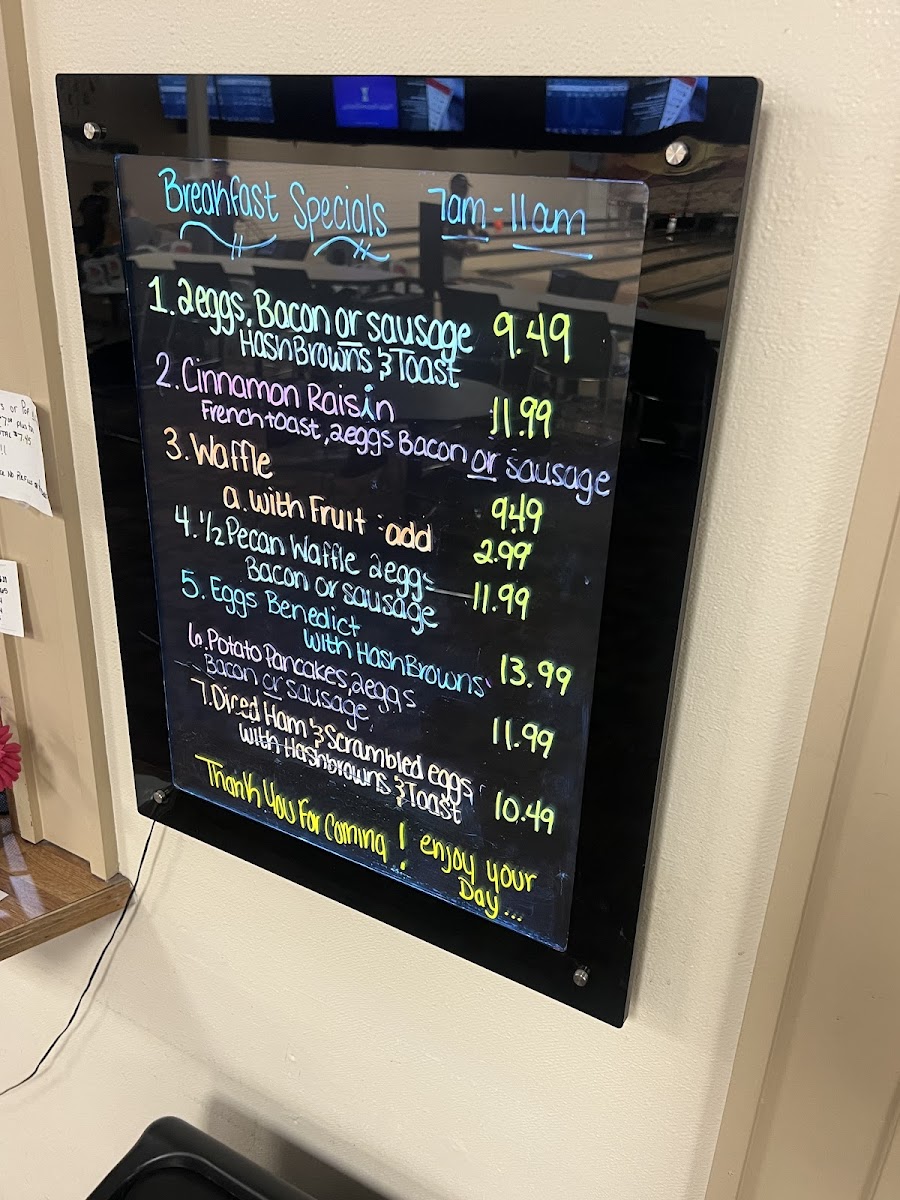 Breakfast Specials 7am - 11am
1. 2eggs, Bacon or sausage 9.49
HashBrowns & Toast
2. Cinnamon Raisin 11.99
French toast, 2eggs Bacon or sausage
3. Waffle 9.49
a. with Fruit : add 2.99
4. 1/2 Pecan Waffle 2eggs 11.99
Bacon or sausage
5. Eggs Benedict
with HashBrowns 13.99
6. Potato Pancakes, 2eggs
Bacon or sausage 11.99
7. Dired Ham & Scrambled eggs
with Hashbrowns & Toast 10.49
Thank You For Coming! enjoy your
Day...